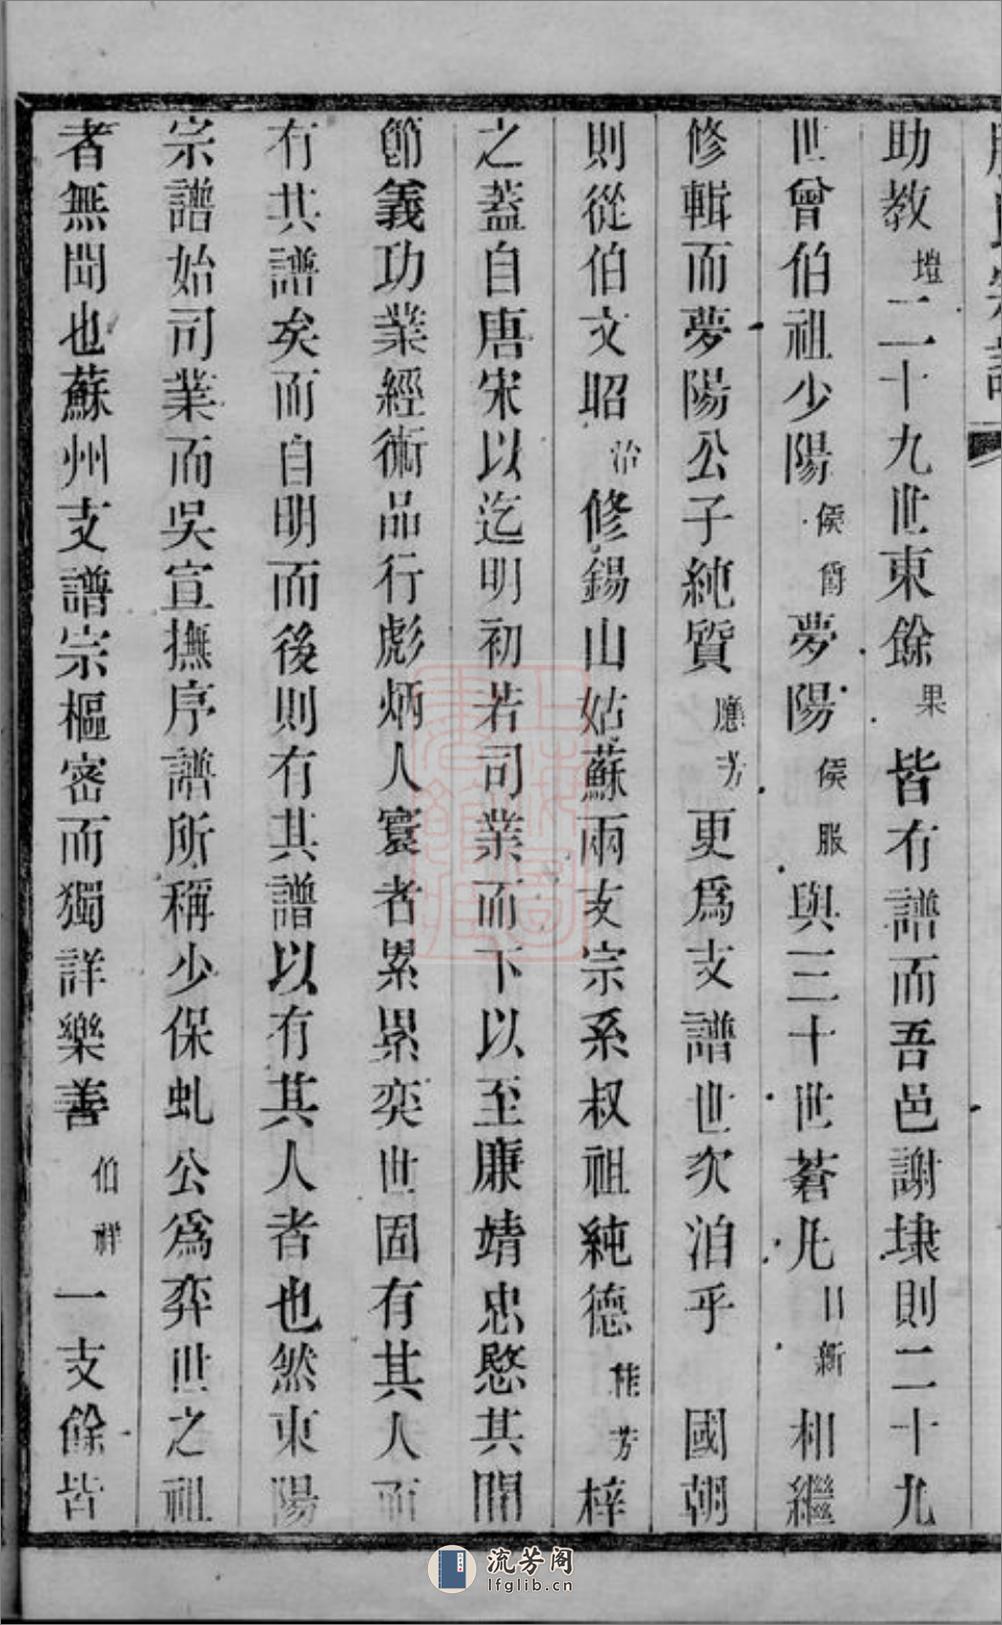 助教塏二十九世東餘果皆有譜而吾邑謝埭則二十九
世曾伯祖少陽侯爵夢陽侯服與三十世蒼凡日新相繼
修輯而夢陽公子純質應芳更爲支譜世次洎乎國朝
則從伯文昭治修錫山姑蘇兩支宗系叔祖純德桂芳梓
之蓋自唐宋以迄明初若司業而下以至廉靖忠愍其間
節義功業經術品行彪炳人寰者累累奕世固有其人而
有其譜矣而自明而後則有其譜以有其人者也然東陽
宗譜始司業而吳宣撫序譜所稱少保虬公爲弈世之祖
者無聞也蘇州支譜宗樞密而獨詳樂善伯祥一支餘皆
流芳阁
lfglib.cn